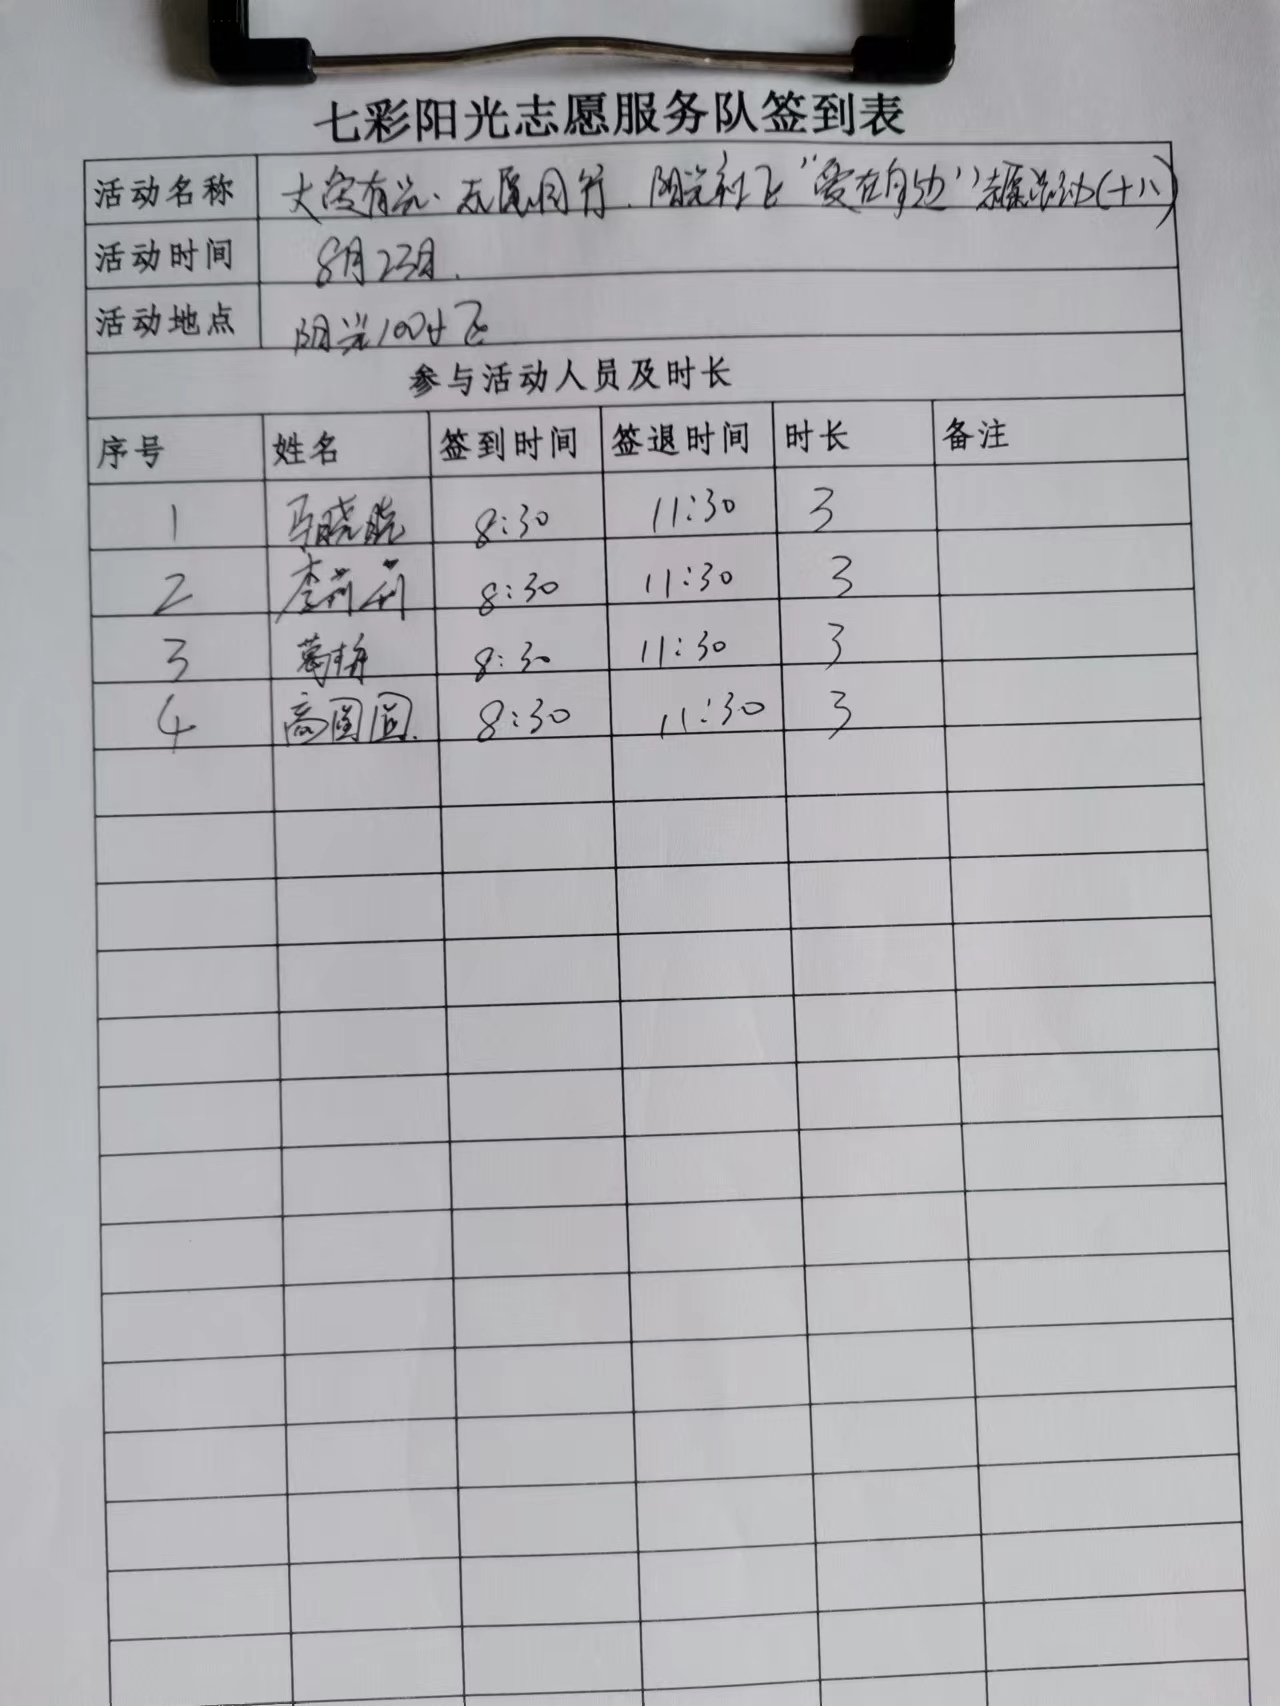 七彩阳光志愿服务队签到表
活动名称 大爱有光、志愿同行.阳光社区“爱在身边”志愿活动(十八)
活动时间 8月23日.
活动地点 阳光100小区
参与活动人员及时长
序号 姓名 签到时间 签退时间 时长 备注
1 马晓晓 8:30 11:30 3
2 李莉莉 8:30 11:30 3
3 8:30 11:30 3
4 高圆圆. 8:30 11:30 3